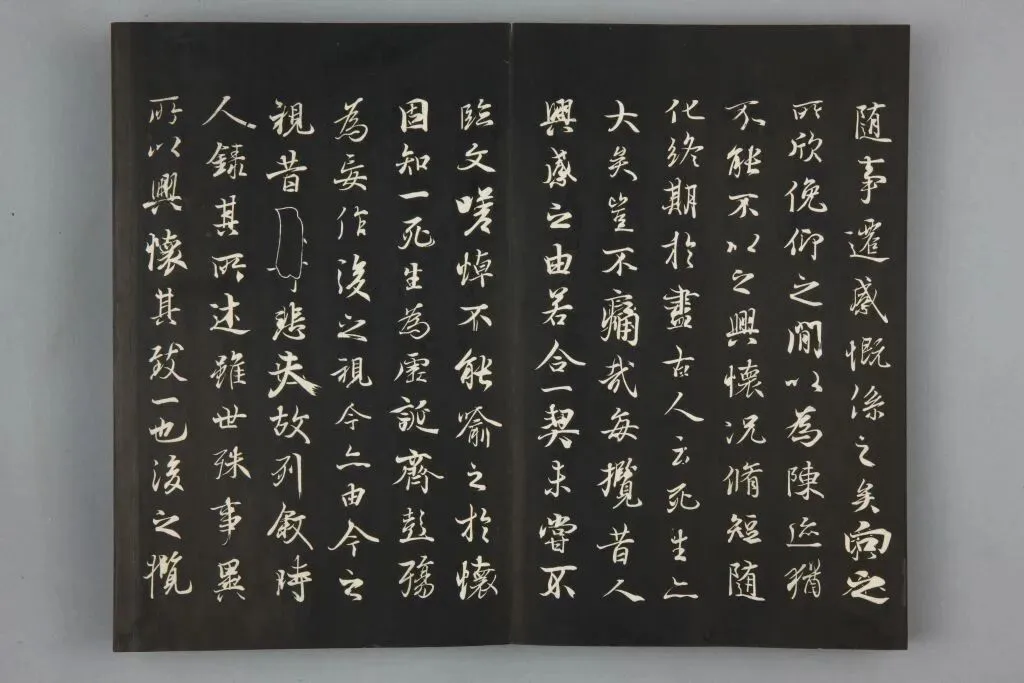 随事遷感慨係之矣向之
所欣俛仰之間以為陳迹猶
不能不以之興懷況脩短随
化終期於盡古人云死生亦
大矣豈不痛哉每攬昔人
興感之由若合一契未嘗不
臨文嗟悼不能喻之於懷
固知一死生為虛誕齊彭殤
為妄作後之視今亦由今之
視昔悲夫故列敘時
人錄其所述雖世殊事異
所以興懷其致一也後之攬